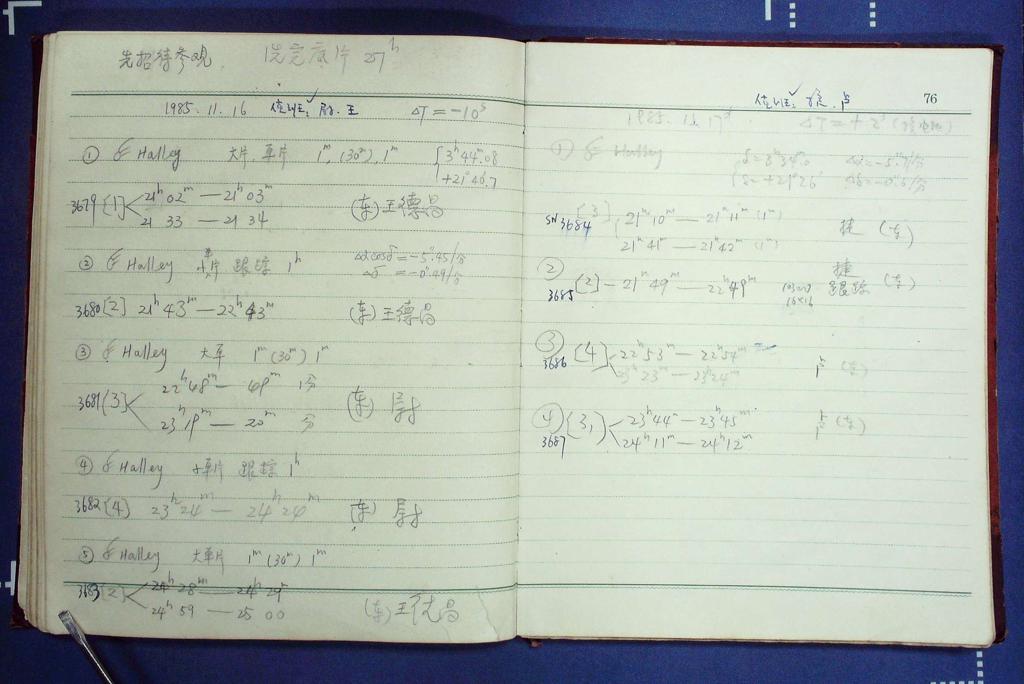 先招待参观 洗完底片 27ʰ
1985. 11. 16 值班: 王 ΔT = -10ˢ
① Halley 大片, 单片 1ᵐ, (30ᵐ), 1ᵐ { 3ʰ44ᵐ.08
+21°46'.7
3679 [1] 21ʰ02ᵐ — 21ʰ03ᵐ (东) 王德昌
21 33 — 21 34
② Halley 单片 跟踪 1ʰ Δαcosδ = -5".45/分
Δδ = -0".49/分
3680 [2] 21ʰ43ᵐ — 22ʰ43ᵐ (东) 王德昌
③ Halley 大单 1ᵐ (30ᵐ) 1ᵐ
22ʰ48ᵐ — 49ᵐ 1分
3681 [3] (东)
23ʰ19ᵐ — 20ᵐ 分
④ Halley 单片 跟踪 1ʰ
3682 [4] 23ʰ24ᵐ — 24ʰ24ᵐ (东)
⑤ Halley 大单片 1ᵐ (30ᵐ) 1ᵐ
3683 [2] 24ʰ28ᵐ — 24ʰ29ᵐ
24ʰ59 — 25 00 (东) 王德昌
值班: 76
1985. 11. 17 ΔT = +2ˢ
① Halley
SN 3684 [3] 21ʰ10ᵐ — 21ʰ11ᵐ (1ᵐ) 捷 (东)
21ʰ41ᵐ — 21ʰ42ᵐ (1ᵐ)
② 捷
3685 [2] - 21ʰ49ᵐ — 22ʰ49ᵐ 跟踪 (东)
16×16
③
3686 [4] 22ʰ53ᵐ — 22ʰ54ᵐ (东)
23ʰ23ᵐ — 23ʰ24ᵐ
④ [3] 23ʰ44ᵐ — 23ʰ45ᵐ (东)
3687 24ʰ11ᵐ — 24ʰ12ᵐ